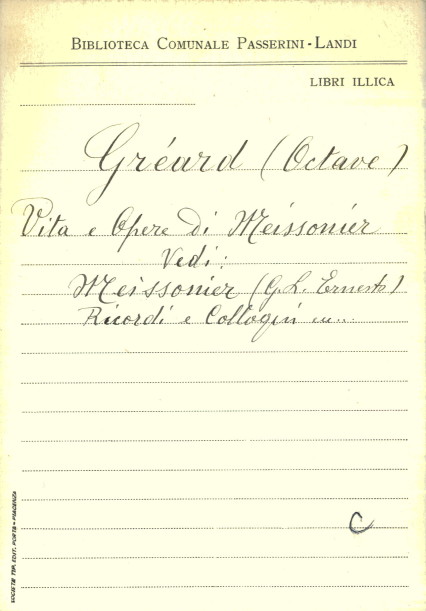 BIBLIOTECA COMUNALE PASSERINI-LANDI
LIBRI ILLICA
Gréard (Octave)
Vita e Opere di Meissonier
Vedi:
Meissonier (G. L. Ernesto)
Ricordi e Colloqui
C
SOCIETÀ TIP. EDIT. PORTA - PIACENZA